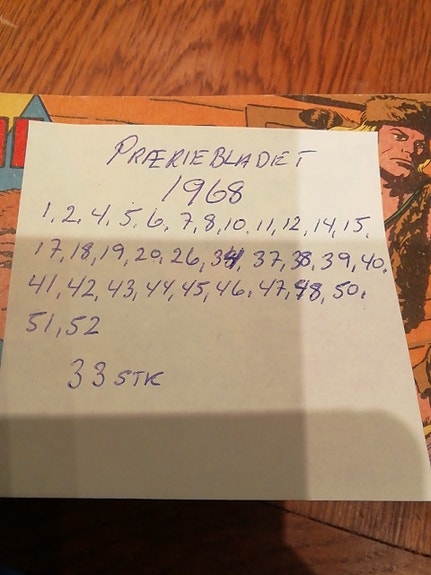 PRÆRIEBLADET
1968
1, 2, 4, 5, 6, 7, 8, 10, 11, 12, 14, 15,
17, 18, 19, 20, 26, 34, 37, 38, 39, 40,
41, 42, 43, 44, 45, 46, 47, 48, 50,
51, 52
33 STK